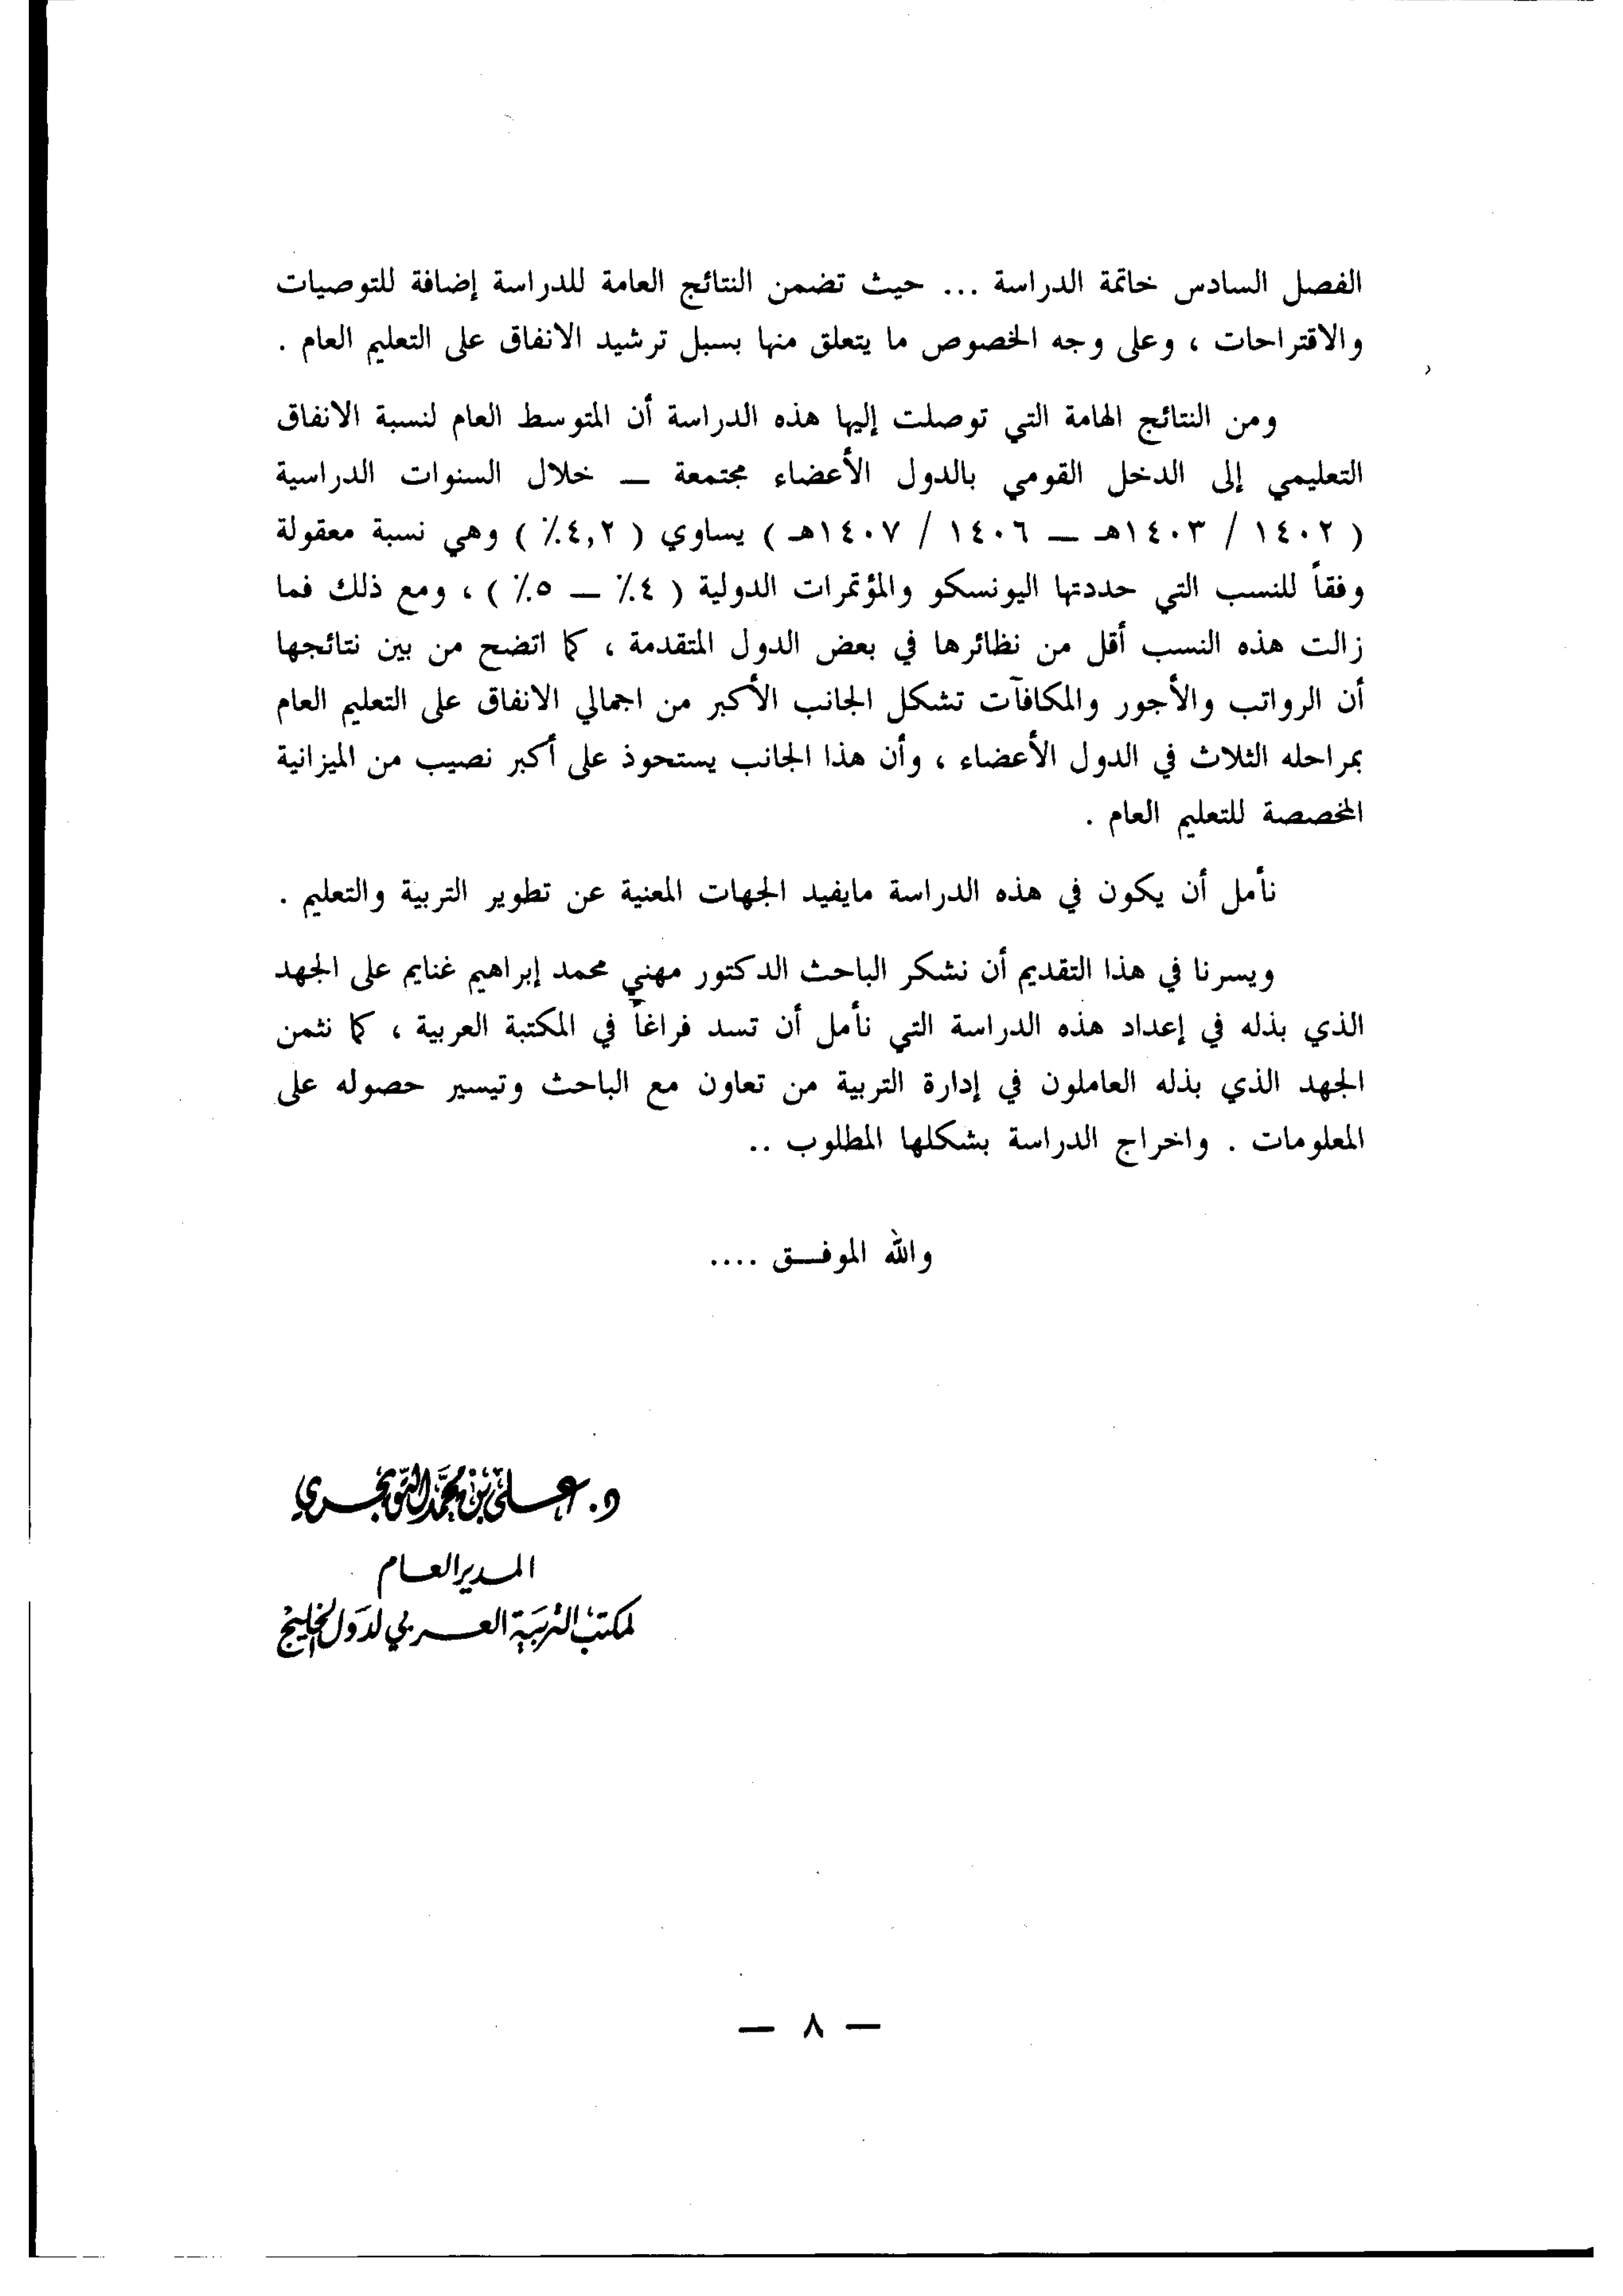 الفصل السادس خاتمة الدراسة ... حيث تضمن النتائج العامة للدراسة إضافة للتوصيات
والاقتراحات ، وعلى وجه الخصوص ما يتعلق منها بسبل ترشيد الانفاق على التعليم العام .
ومن النتائج الهامة التي توصلت إليها هذه الدراسة أن المتوسط العام لنسبة الانفاق
التعليمي إلى الدخل القومي بالدول الأعضاء مجتمعة — خلال السنوات الدراسية
( ١٤٠٢ / ١٤٠٣هـ — ١٤٠٦ / ١٤٠٧هـ ) يساوي ( ٤,٢٪ ) وهي نسبة معقولة
وفقاً للنسب التي حددتها اليونسكو والمؤتمرات الدولية ( ٤٪ — ٥٪ ) ، ومع ذلك فما
زالت هذه النسب أقل من نظائرها في بعض الدول المتقدمة ، كما اتضح من بين نتائجها
أن الرواتب والأجور والمكافآت تشكل الجانب الأكبر من اجمالي الانفاق على التعليم العام
بمراحله الثلاث في الدول الأعضاء ، وأن هذا الجانب يستحوذ على أكبر نصيب من الميزانية
المخصصة للتعليم العام .
نأمل أن يكون في هذه الدراسة مايفيد الجهات المعنية عن تطوير التربية والتعليم .
ويسرنا في هذا التقديم أن نشكر الباحث الدكتور مهني محمد إبراهيم غنايم على الجهد
الذي بذله في إعداد هذه الدراسة التي نأمل أن تسد فراغاً في المكتبة العربية ، كما نثمن
الجهد الذي بذله العاملون في إدارة التربية من تعاون مع الباحث وتيسير حصوله على
المعلومات . واخراج الدراسة بشكلها المطلوب ..
والله الموفـــق ....
د. عـلي بن محمد التويجـري
المـدير العـام
لمكتب التربية العـربي لدول الخليج
— ٨ —